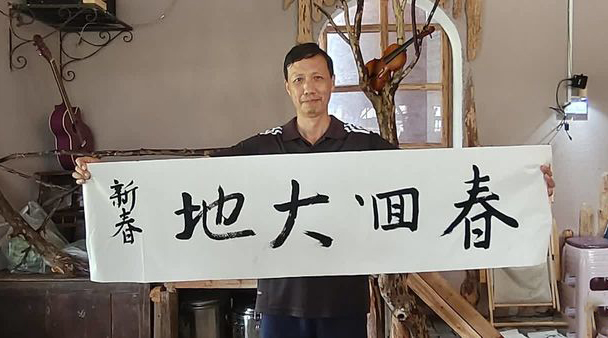 春回大地
新春